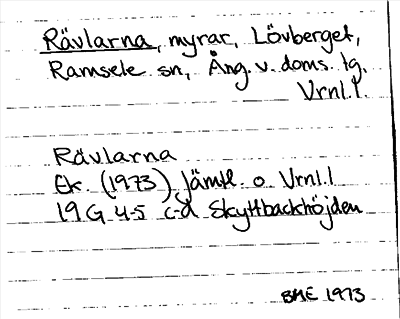 Rävlarna, myrar, Lövberget,
Ramsele sn, Ång. v. doms. tg.
Vrnl.l.
Rävlarna
Ek. (1973) Jämtl. o Vrnl.l
19 G 4-5 c-d Skyttbackhöjden
BME 1973